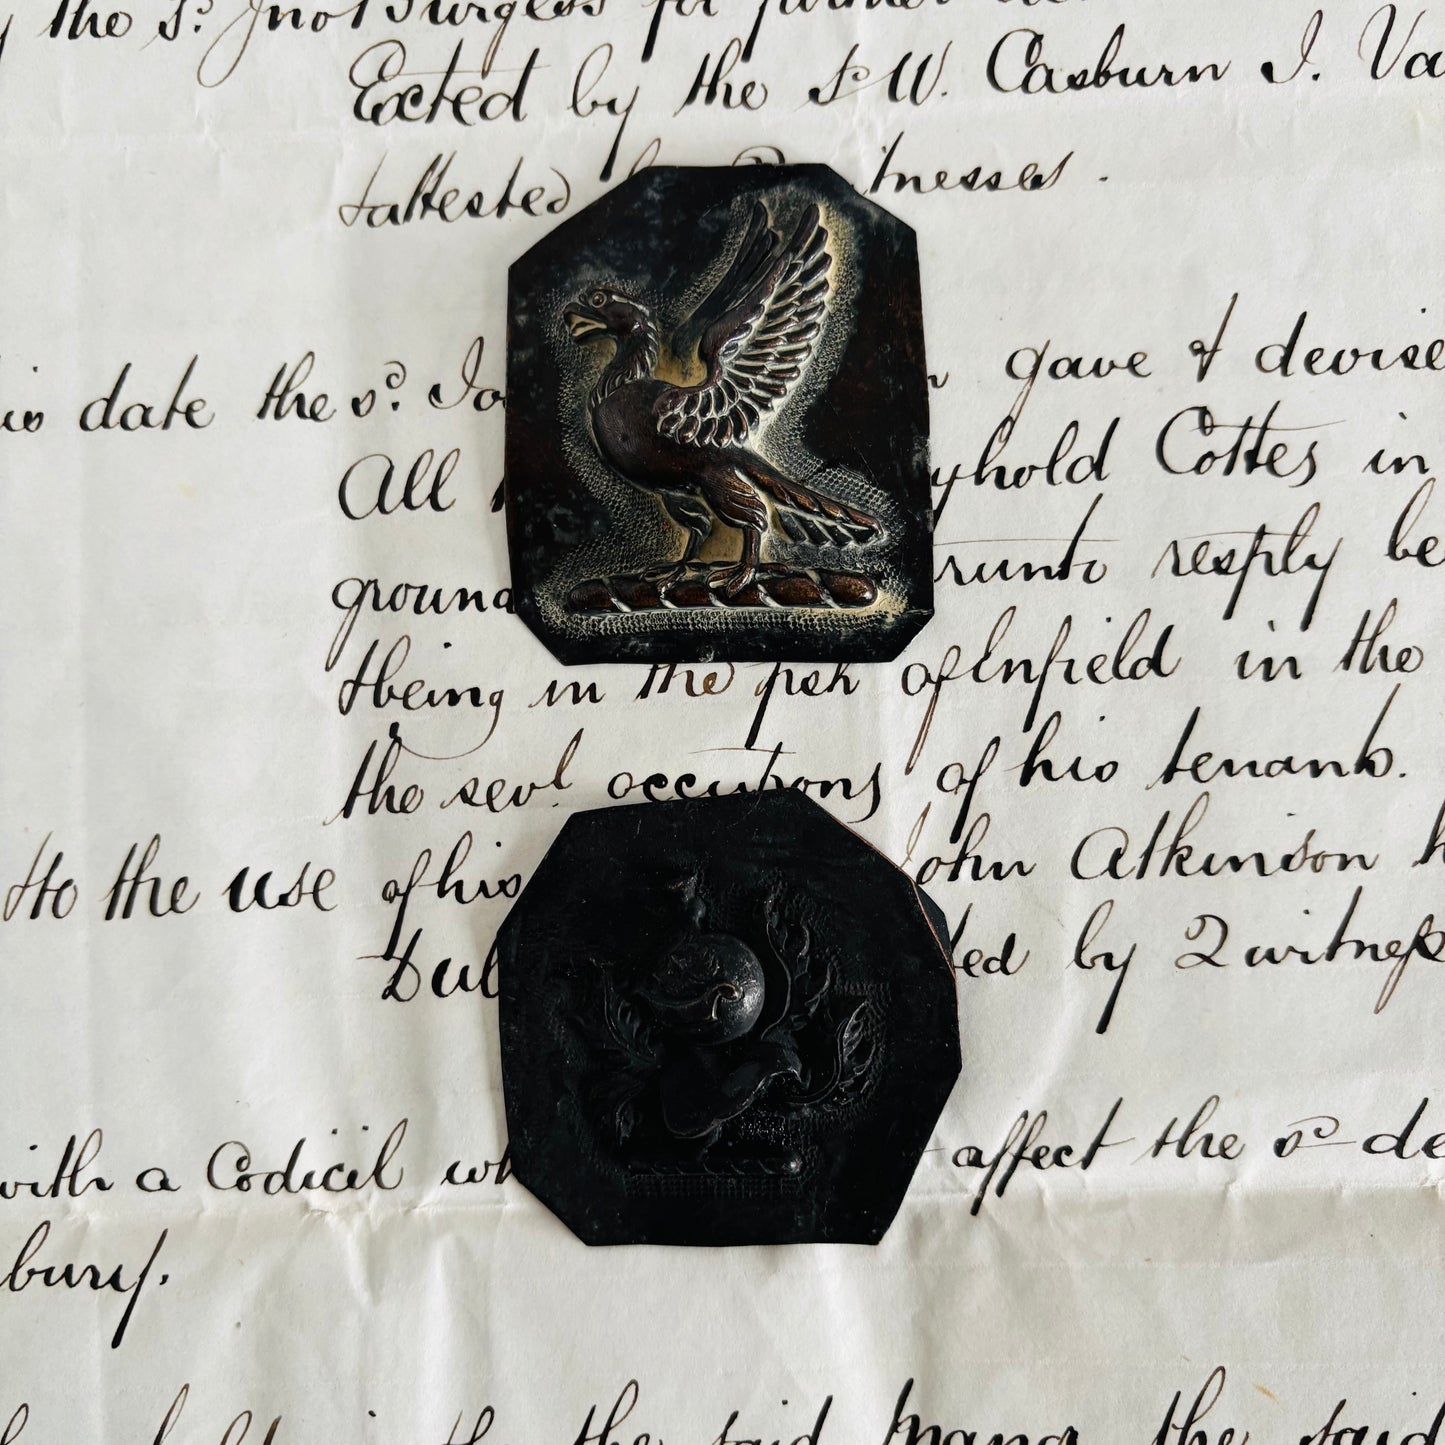 the s.d Jno Burgess for further
Exted by the s.d W. Casburn I. Va
& attested by 2 witnesses.
date the s.d gave & devise
All Cottes in
ground resply be
& being in the psh of Enfield in the
the sevl occupons of his tenants.
to the use of his John Atkinson h
Dul ted by 2 witness
with a Codicil wh affect the s.d de
bury.
the said Mang the said